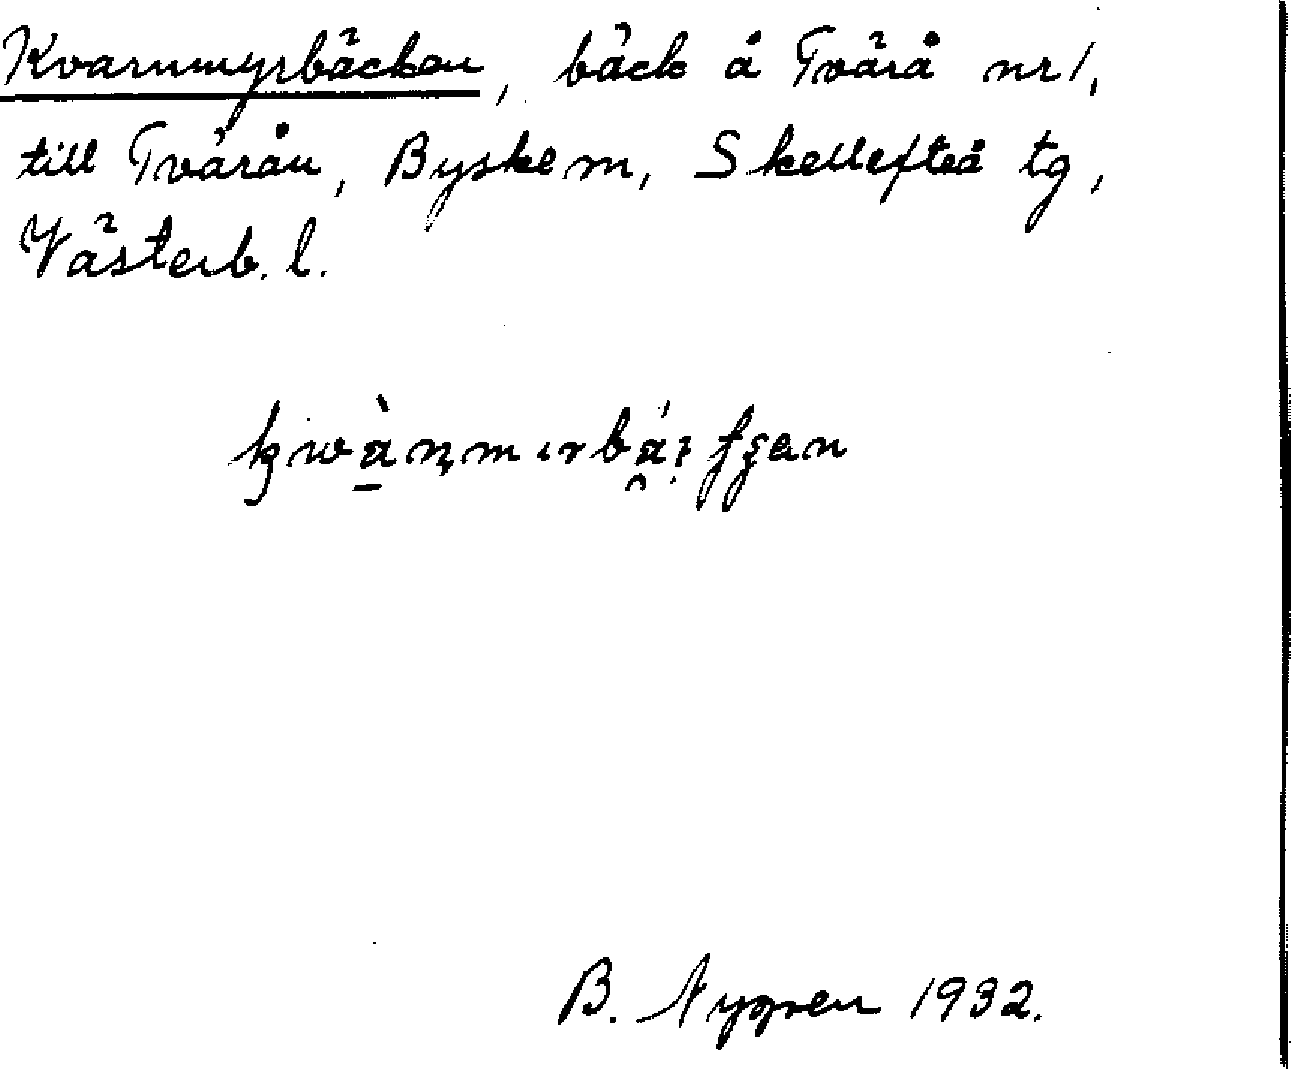 Kvarnmyrbäcken, bäck å Tvärå nr 1,
till Tvärån, Byske m, Skellefteå tg,
Västerb. l.
B. Nygren 1932.